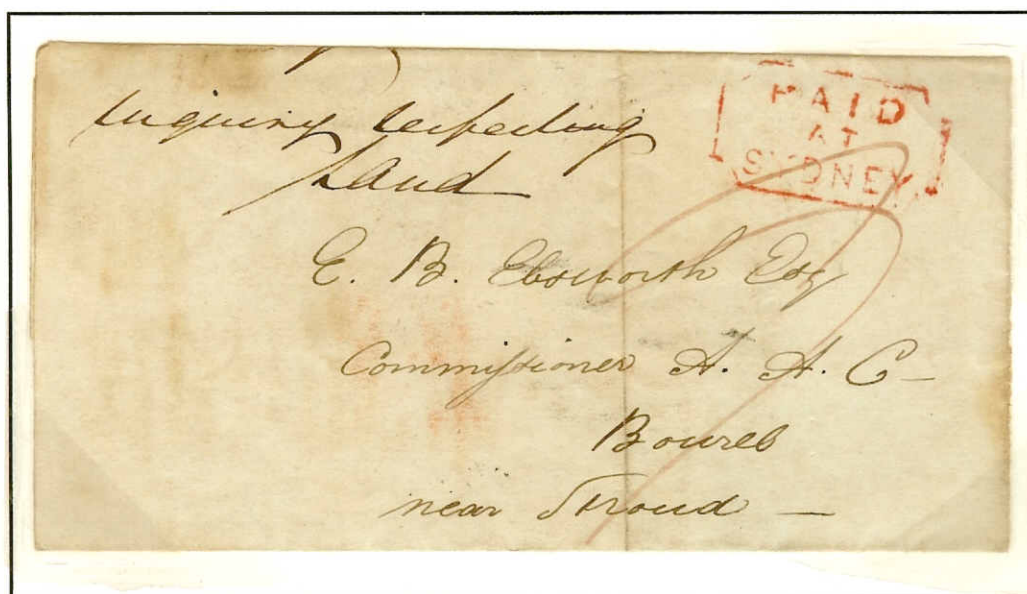 Inquiry respecting
Land
PAID
AT
SYDNEY
E. B. Ebsworth Esq
Commissioner A. A. C
Boureb
near Stroud